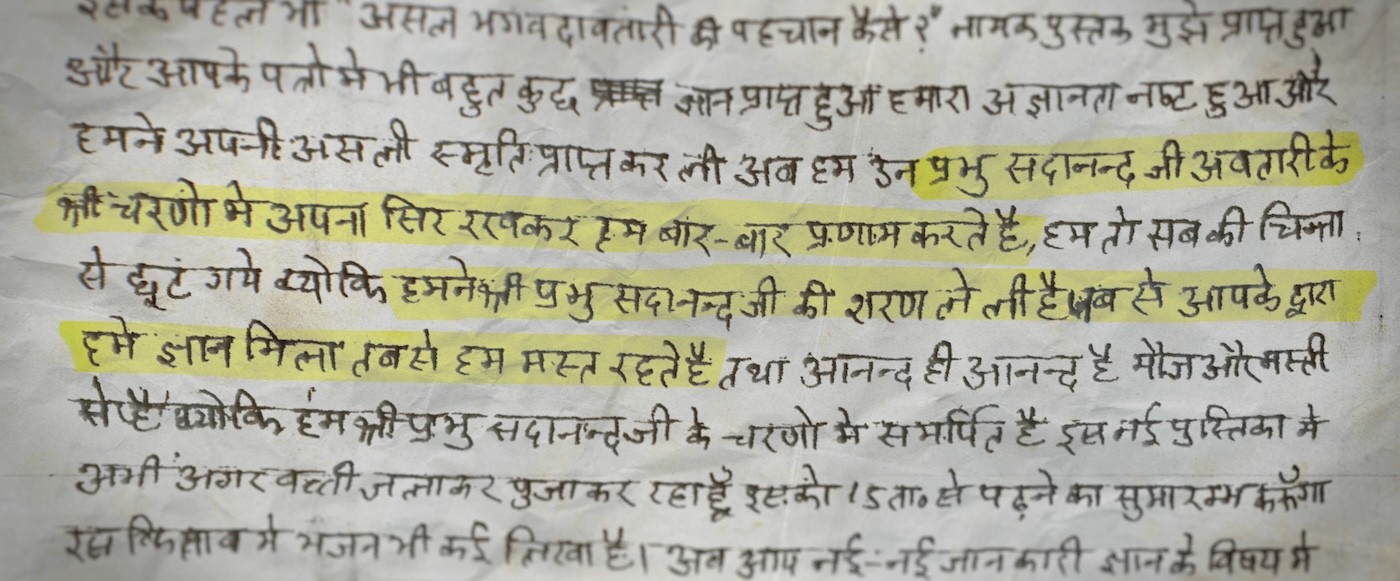 इसके पहले भी "असल भगवदावतारी की पहचान कैसे?" नामक पुस्तक मुझे प्राप्त हुआ
और आपके पत्रो मे भी बहुत कुछ ज्ञान प्राप्त हुआ हमारा अज्ञानता नष्ट हुआ और
हमने अपनी असली स्मृति प्राप्त कर ली अब हम उन प्रभु सदानन्द जी अवतारी के
श्री चरणो मे अपना सिर रखकर हम बार-बार प्रणाम करते है, हम तो सब की चिन्ता
से छूट गये क्योकि हमने श्री प्रभु सदानन्द जी की शरण ले ली है जब से आपके द्वारा
हमे ज्ञान मिला तब से हम मस्त रहते है तथा आनन्द ही आनन्द है मौज और मस्ती
से है क्योकि हम श्री प्रभु सदानन्द जी के चरणो मे समर्पित है इस नई पुस्तिका मे
अभी अगरवत्ती जलाकर पुजा कर रहा हूँ इसको 15 ता० से पढ़ने का सुभारम्भ करूँगा
इस किताब मे भजन भी कई लिखा है। अब आप नई-नई जानकारी ज्ञान के विषय मे